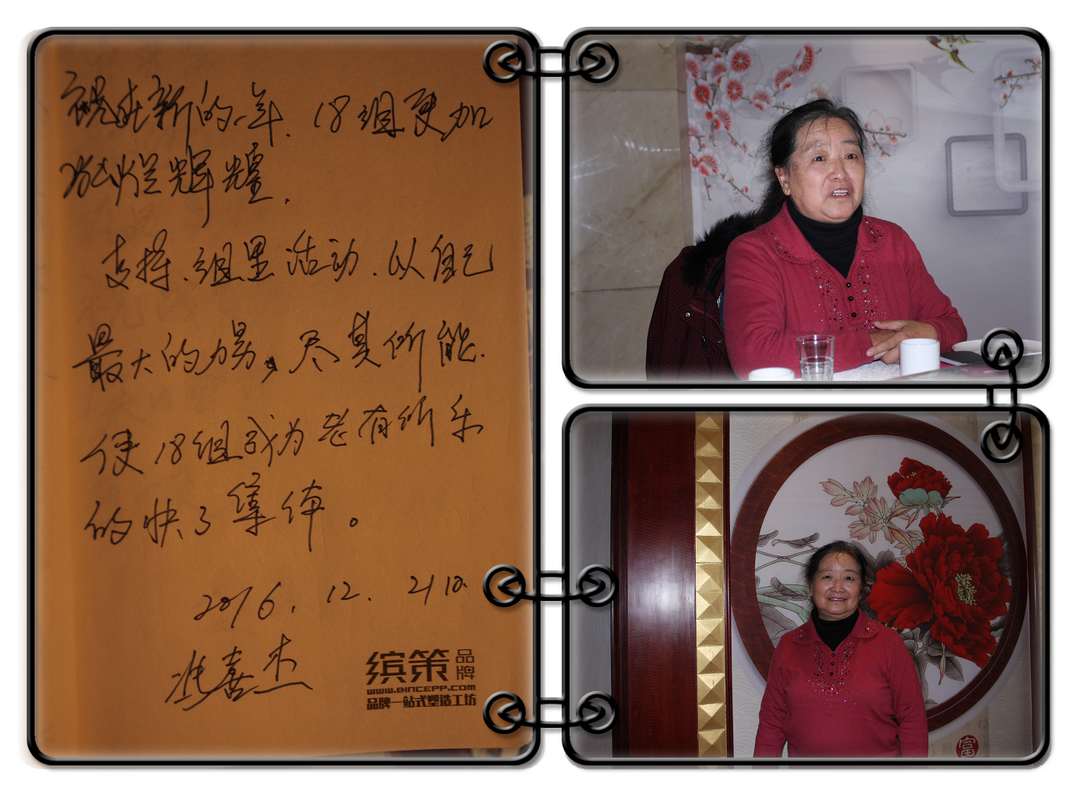 祝在新的一年、18组更加
灿烂辉煌.
支持、组里活动、以自己
最大的力量, 尽其所能.
使18组成为老有所乐
的快乐集体。
2016. 12. 21日
喜杰
缤策品牌
www.BINCEPP.com
品牌一站式塑造工坊